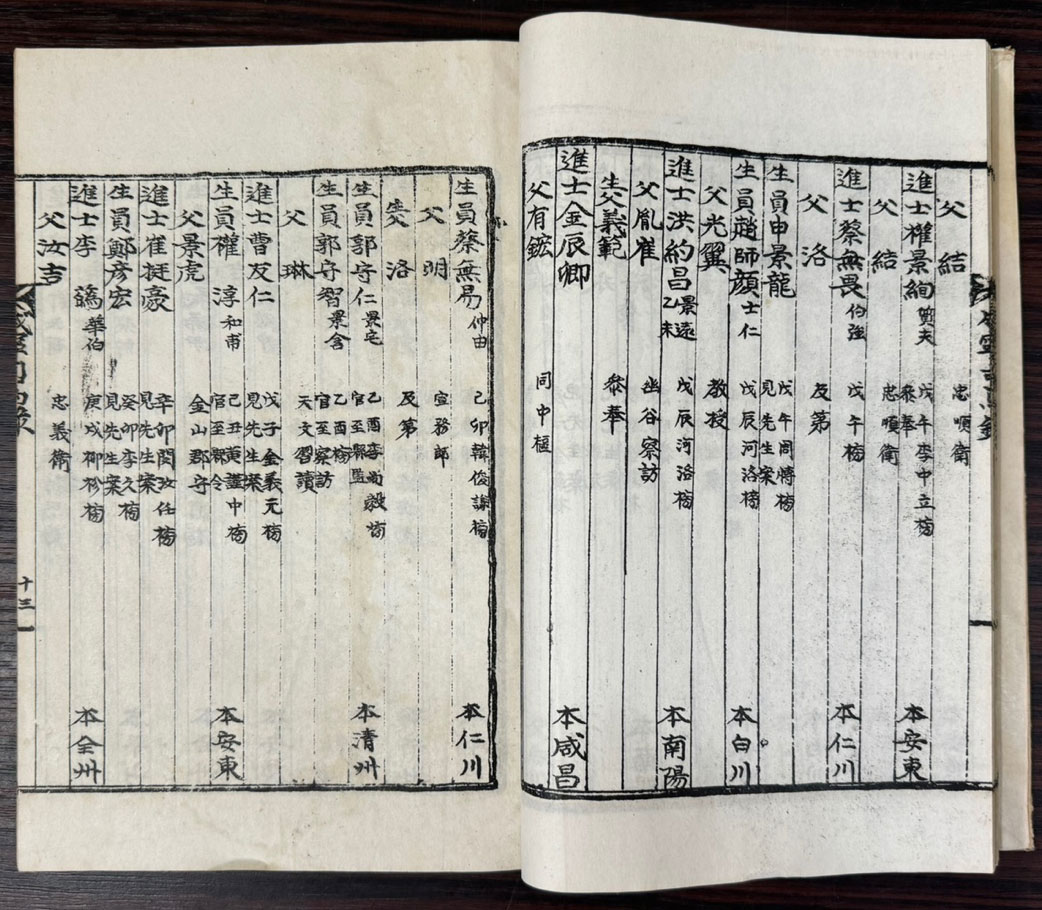 父結 忠順衛
進士權景絢 質夫 戊午李中立榜 本安東
參奉
父結 忠順衛
進士蔡無畏 伯強 戊午榜 本仁川
父洛 及第
生員申景龍 戊午周愽榜
見先生案
生員趙師顔 士仁 戊辰河洛榜 本白川
父光翼 教授
進士洪約昌 景遠 乙未 戊辰河洛榜 本南陽
父胤崔 幽谷察訪
生父義範 參奉
進士金辰卿 本咸昌
父有鋐 同中樞
生員蔡無易 仲由 己卯韓俊謙榜 本仁川
父明 宣務郎
生父洛 及第
生員郭守仁 景宅 乙酉李尚毅榜 本清州
官至縣監
生員郭守智 景含 乙酉榜
官至察訪
父琳 天文習讀
進士曹友仁 戊子金義元榜
見先生案
生員權淳 和甫 己丑黃謹中榜 本安東
官至縣令
父景虎 金山郡守
進士崔挺豪 辛卯閔汝任榜
見先生案
生員鄭彥宏 癸卯李久榜
見先生案
進士李 華伯 庚戌柳袗榜 本全州
父汝吉 忠義衛
十三